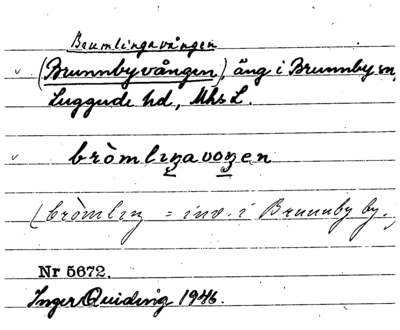 Brumlingavången
v (Brunnbyvången), äng i Brunnby sn,
Luggude hd, Mhs L.
v bròmlıŋavoŋen
(bròmlıŋ = inv. i Brunnby by.)
Nr 5672.
Inger Quiding 1946.